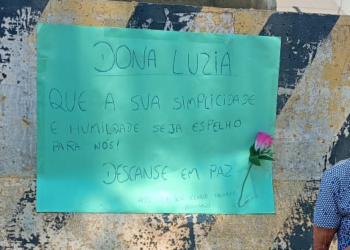 DONA LUZIA
QUE A SUA SIMPLICIDADE
E HUMILDADE SEJA ESPELHO
PARA NÓS!
DESCANSE EM PAZ